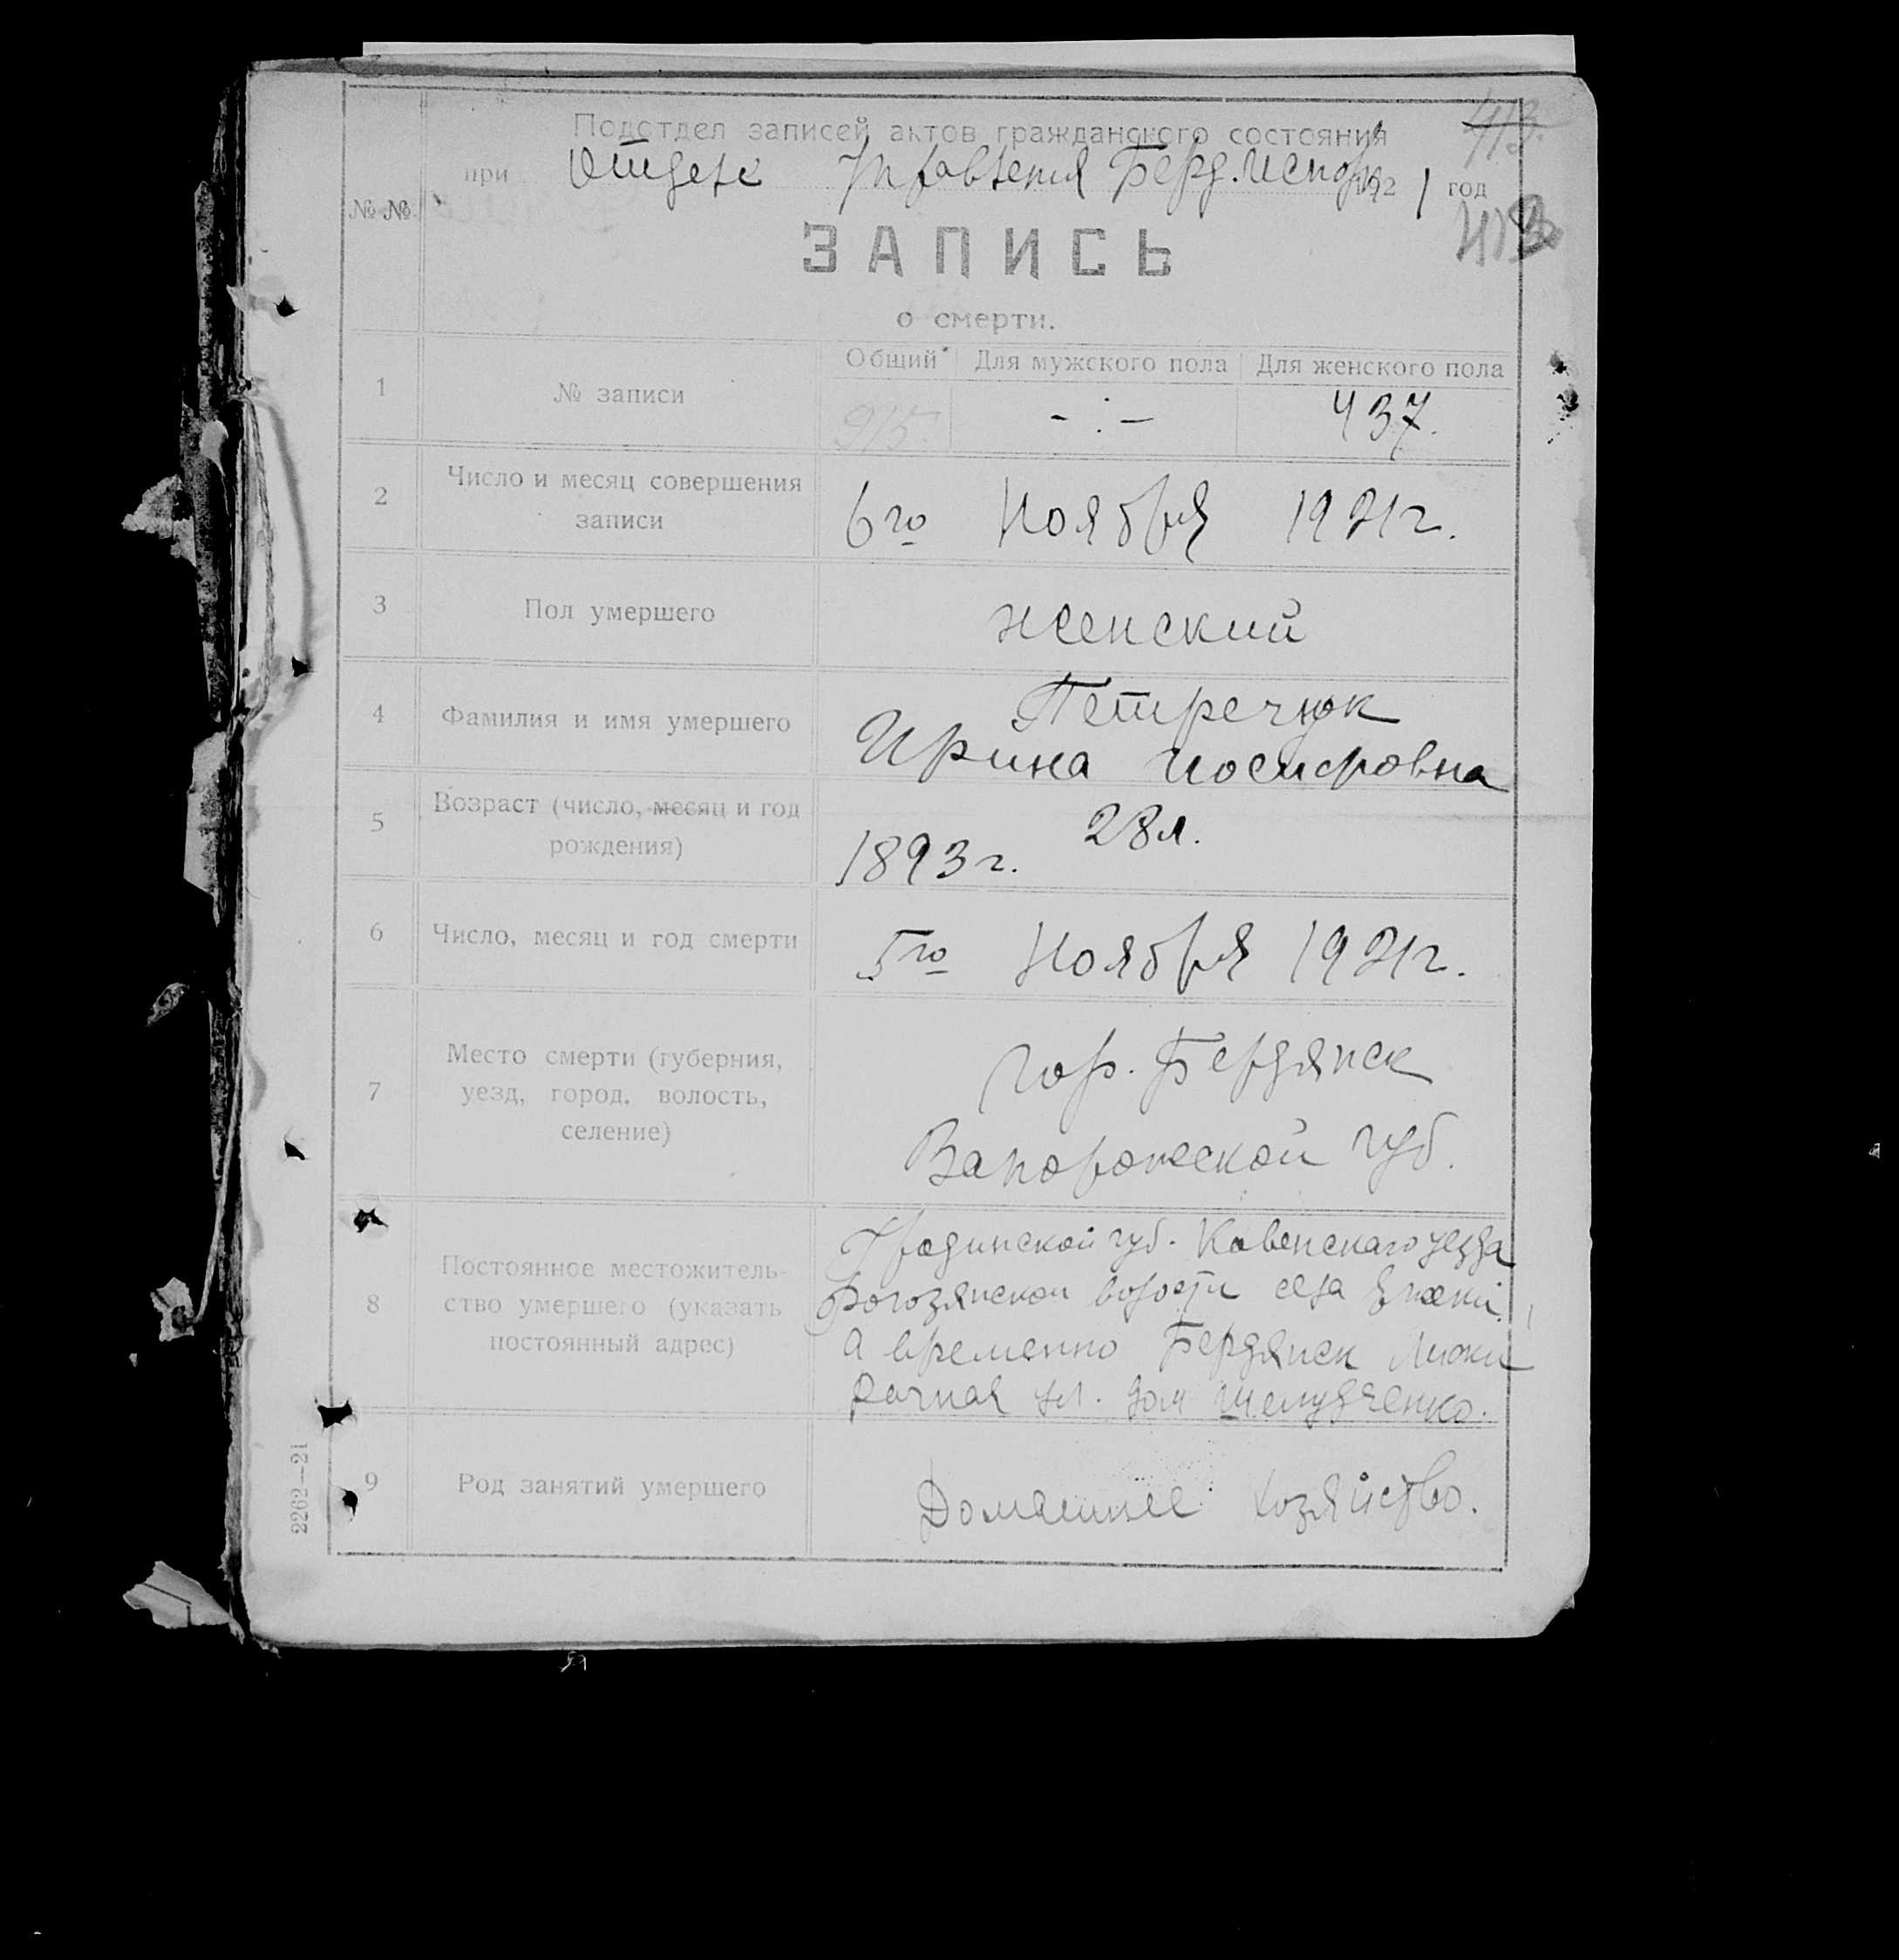 Подотдел записей актов гражданского состояния
413.
при Отделе Управления Берд. Исполк 192 1 год
№ №
413
ЗАПИСЬ
о смерти.
Общий Для мужского пола Для женского пола
1 № записи 915. - : - 437.
2 Число и месяц совершения
записи
6го Ноября 1921г.
3 Пол умершего женский
4 Фамилия и имя умершего
Петречук
Ирина Иосифовна
5 Возраст (число, месяц и год
рождения)
28л.
1893г.
6 Число, месяц и год смерти 5го Ноября 1921г.
7 Место смерти (губерния,
уезд, город, волость,
селение)
гор. Бердянск
Запорожской губ.
8 Постоянное местожитель-
ство умершего (указать
постоянный адрес)
Гродинской губ. Ковенскаго уезда
волости села
а временно Бердянск
ул. дом Шелудченко.
9 Род занятий умершего Домашнее хозяйство.
2262—21